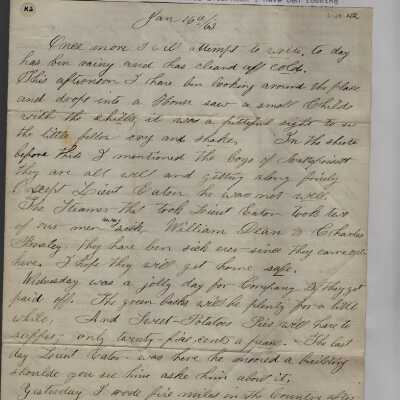 Jan 16th/63
Once more I will attempt to write, to day
has ben rainy and has cleard off cold.
This afternoon I have ben looking around the place
and dropt into a house saw a small Childe
with the chills, it was a pittiful sight to see
the little feller cry and shake. In the sheets
before this I mentioned the boys of
they are all well and gitting along finely
Except Lieut Eaton he was not well.
The Steamer that took Lieut Eaton took two
of our men away sick, William Dean & Charles
they have ben sick ever since they came
here. I hope they will get home safe.
Wednesday was a jolly day for Company D, they got
paid off. The green backs will be plenty for a little
while. And Sweet-Potatoe Pies will have to
suffer, only twenty five cents a piece. The last
day Lieut Eaton was here he moved a building
shoulde you see him ask him about it.
Yesterday I rode five miles in the Country after